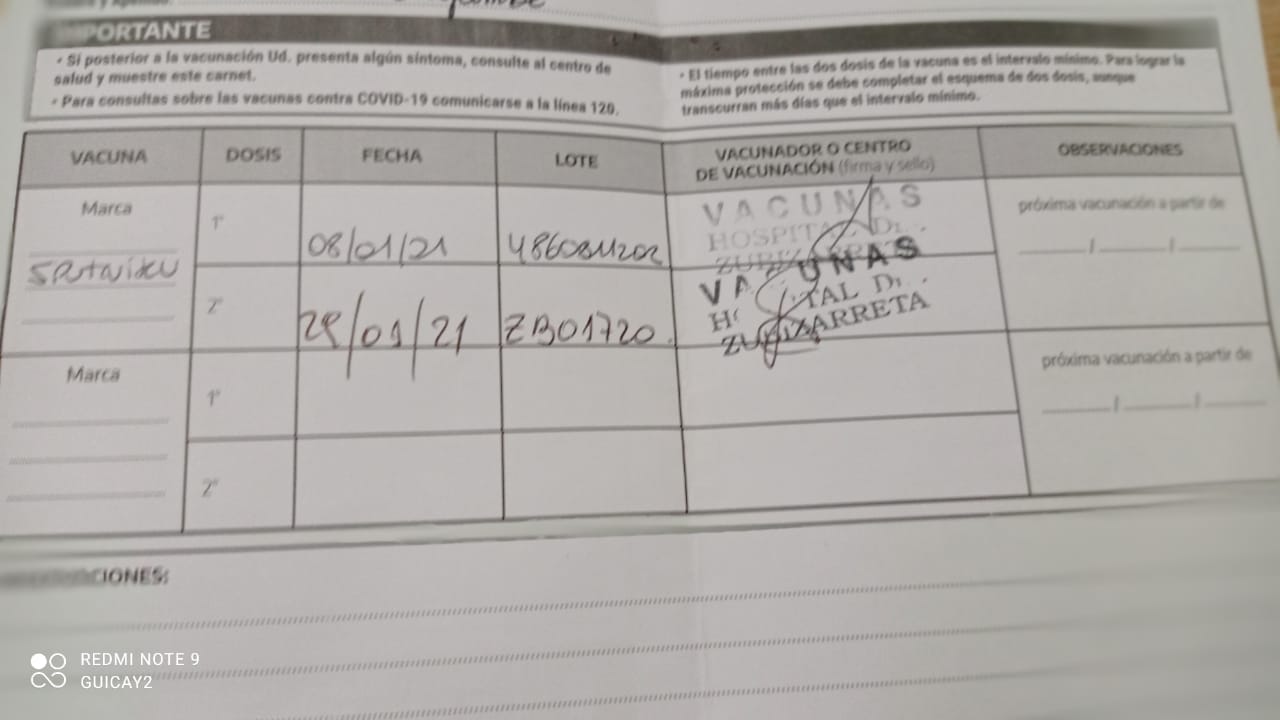 PORTANTE
• Si posterior a la vacunación Ud. presenta algún síntoma, consulte al centro de
salud y muestre este carnet.
• Para consultas sobre las vacunas contra COVID-19 comunicarse a la línea 120.
• El tiempo entre las dos dosis de la vacuna es el intervalo mínimo. Para lograr la
máxima protección se debe completar el esquema de dos dosis, aunque
transcurran más días que el intervalo mínimo.
VACUNA DOSIS FECHA LOTE VACUNADOR O CENTRO
DE VACUNACIÓN (firma y sello) OBSERVACIONES
Marca 1° 08/01/21 VACUNAS próxima vacunación a partir de
HOSPITAL
2° 29/01/21 ZB01720 VACUNAS
ZUBIZARRETA
Marca 1° próxima vacunación a partir de
2°
CIONES:
REDMI NOTE 9
GUICAY2